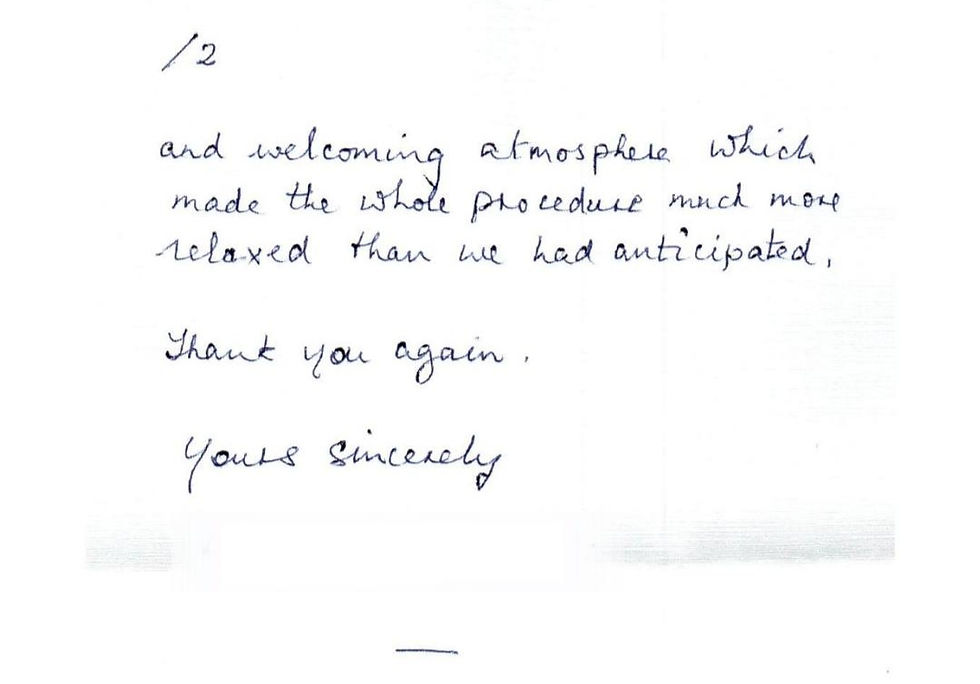 /2
and welcoming atmosphere which
made the whole procedure much more
relaxed than we had anticipated.
Thank you again.
Yours sincerely